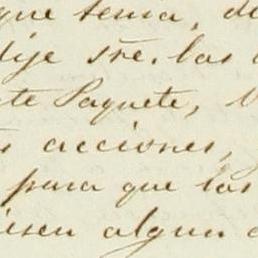 que tenia, de
dije sre. las
te Paquete,
s acciones,
para que los
iesen algun